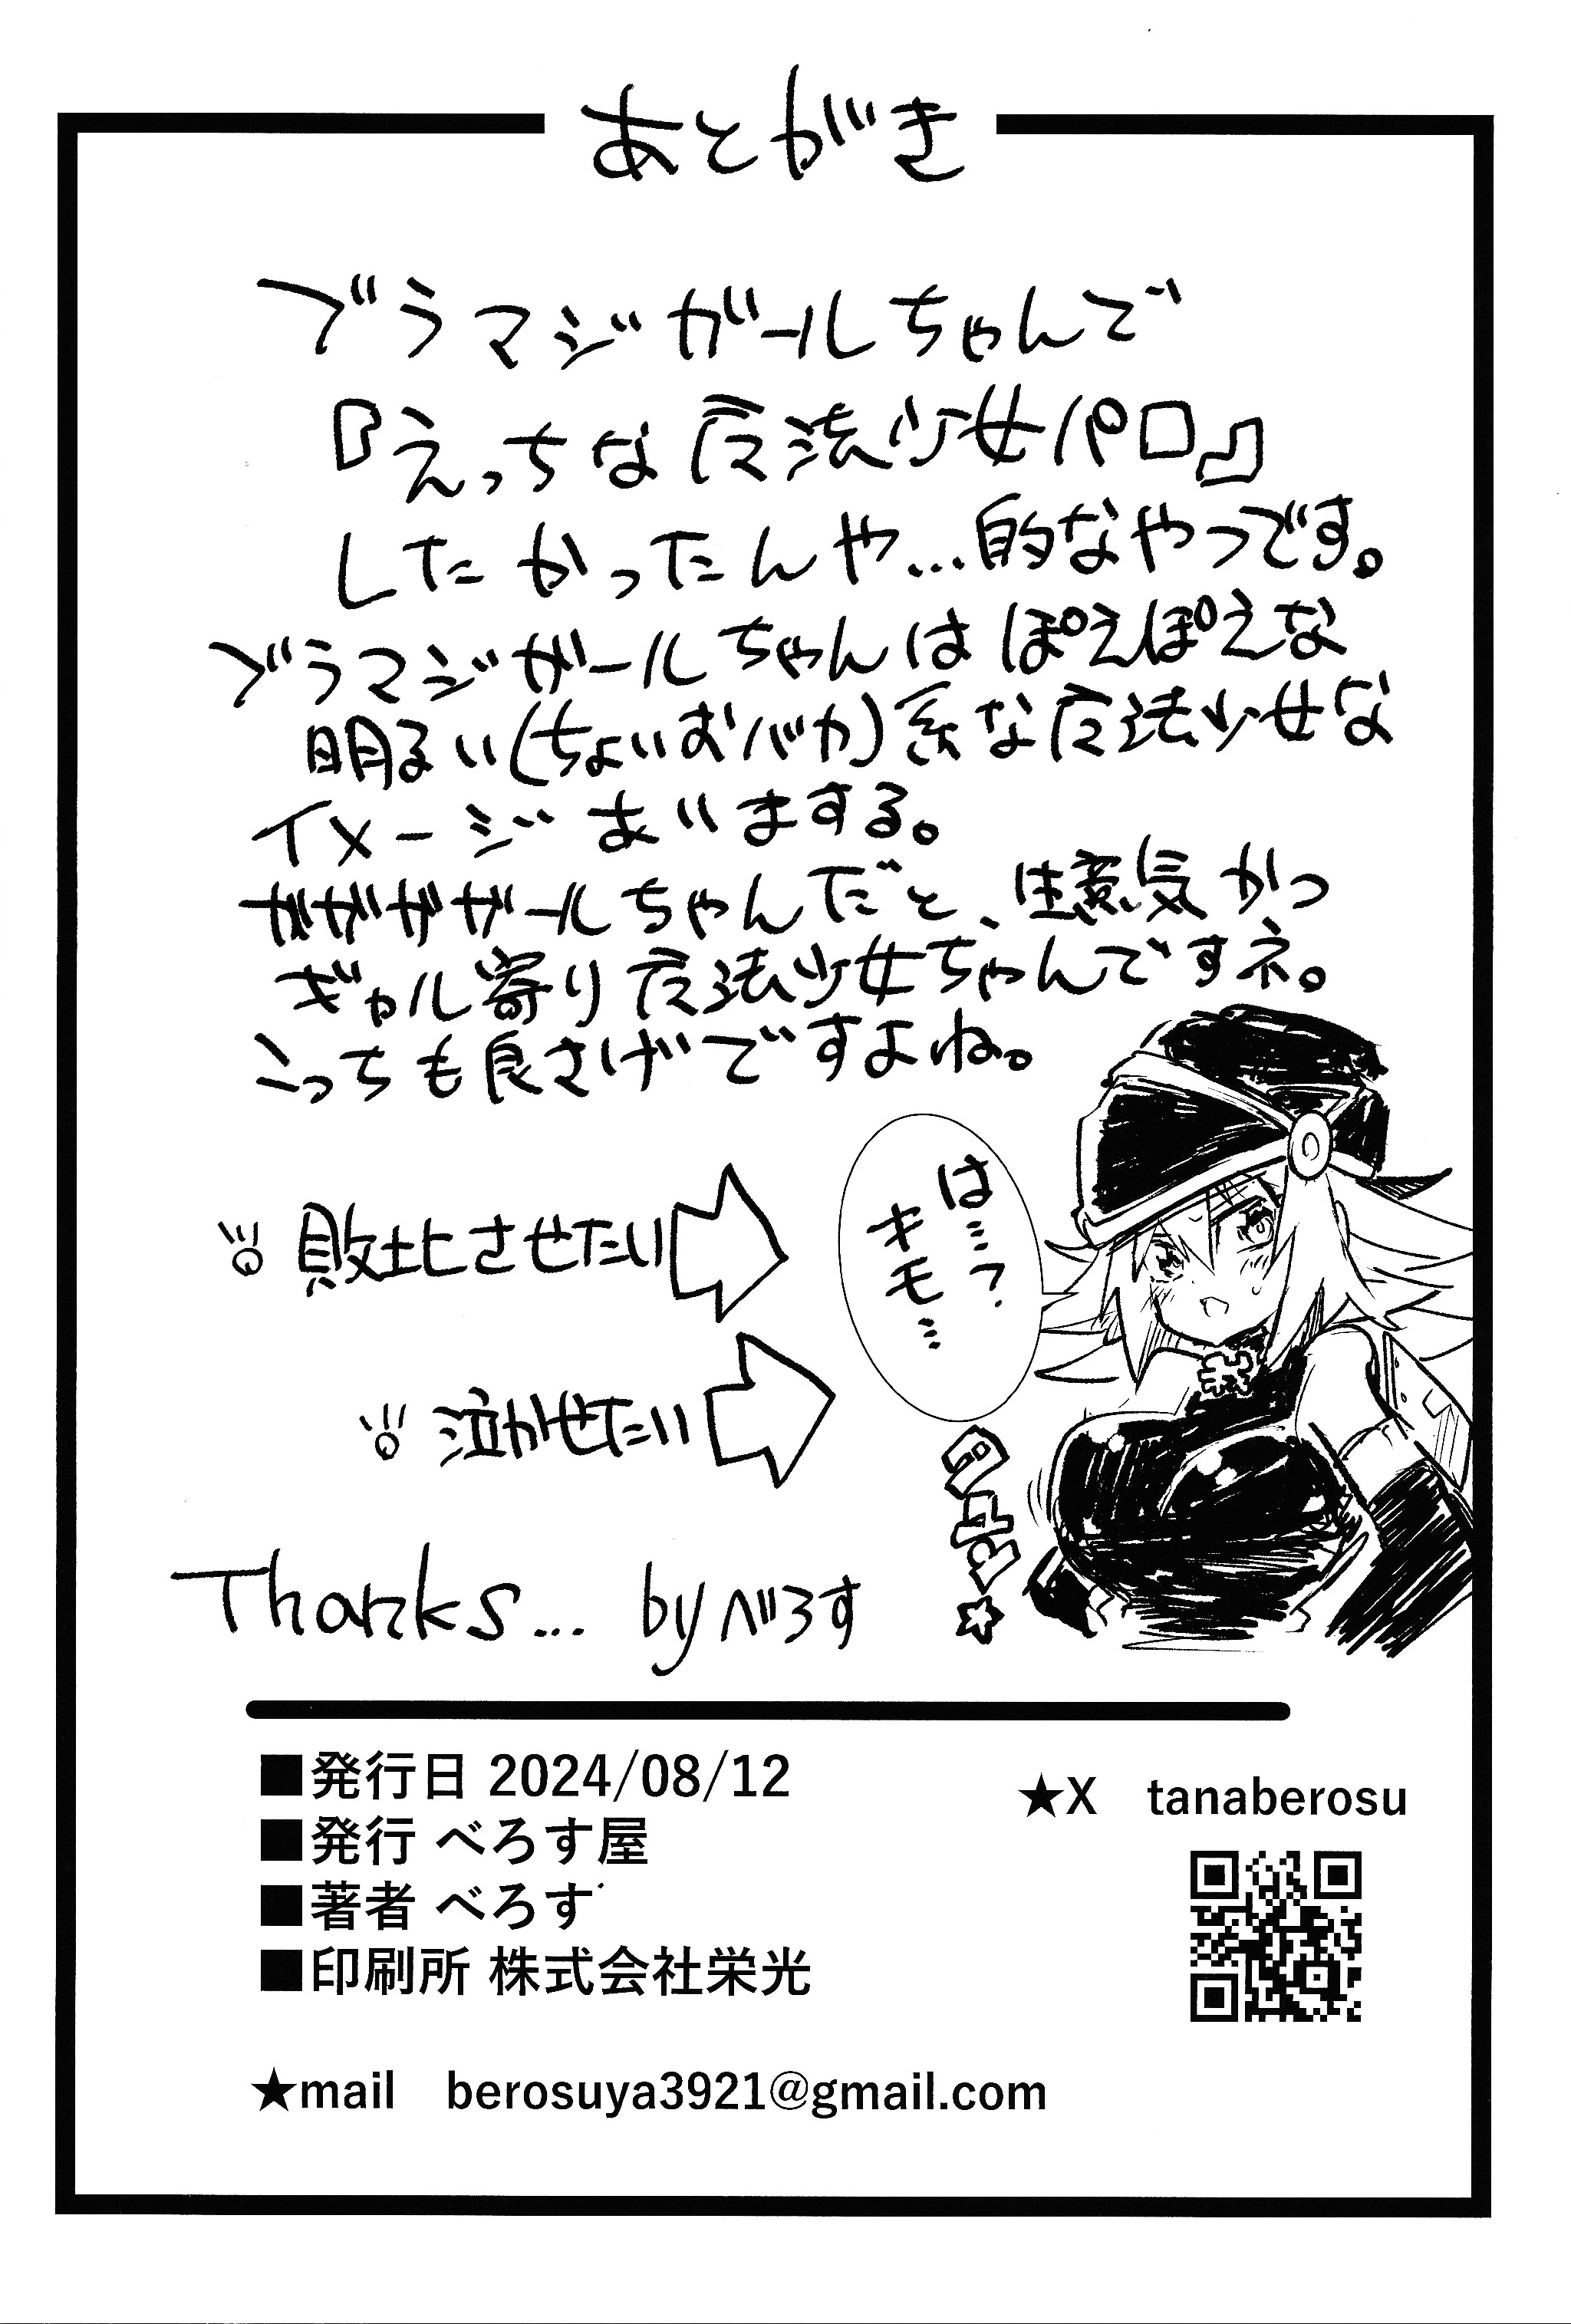 あとがき
ブラマジガールちゃんで
『えっちな魔法少女パロ』
したかったんや…的なやつです。
ブラマジガールちゃんはぽえぽえな
明るい(ちょいおバカ)系な魔法少女な
イメージあいまする。
ガガガガールちゃんだと、生意気かつ
ギャル寄り魔法少女ちゃんですネ。
こっちも良さげですよね。
は…?
キモ…
敗北させたい
泣かせたい
Thanks... by べろす
■発行日 2024/08/12
■発行 べろす屋
■著者 べろす
■印刷所 株式会社栄光
★X tanaberosu
★mail berosuya3921@gmail.com